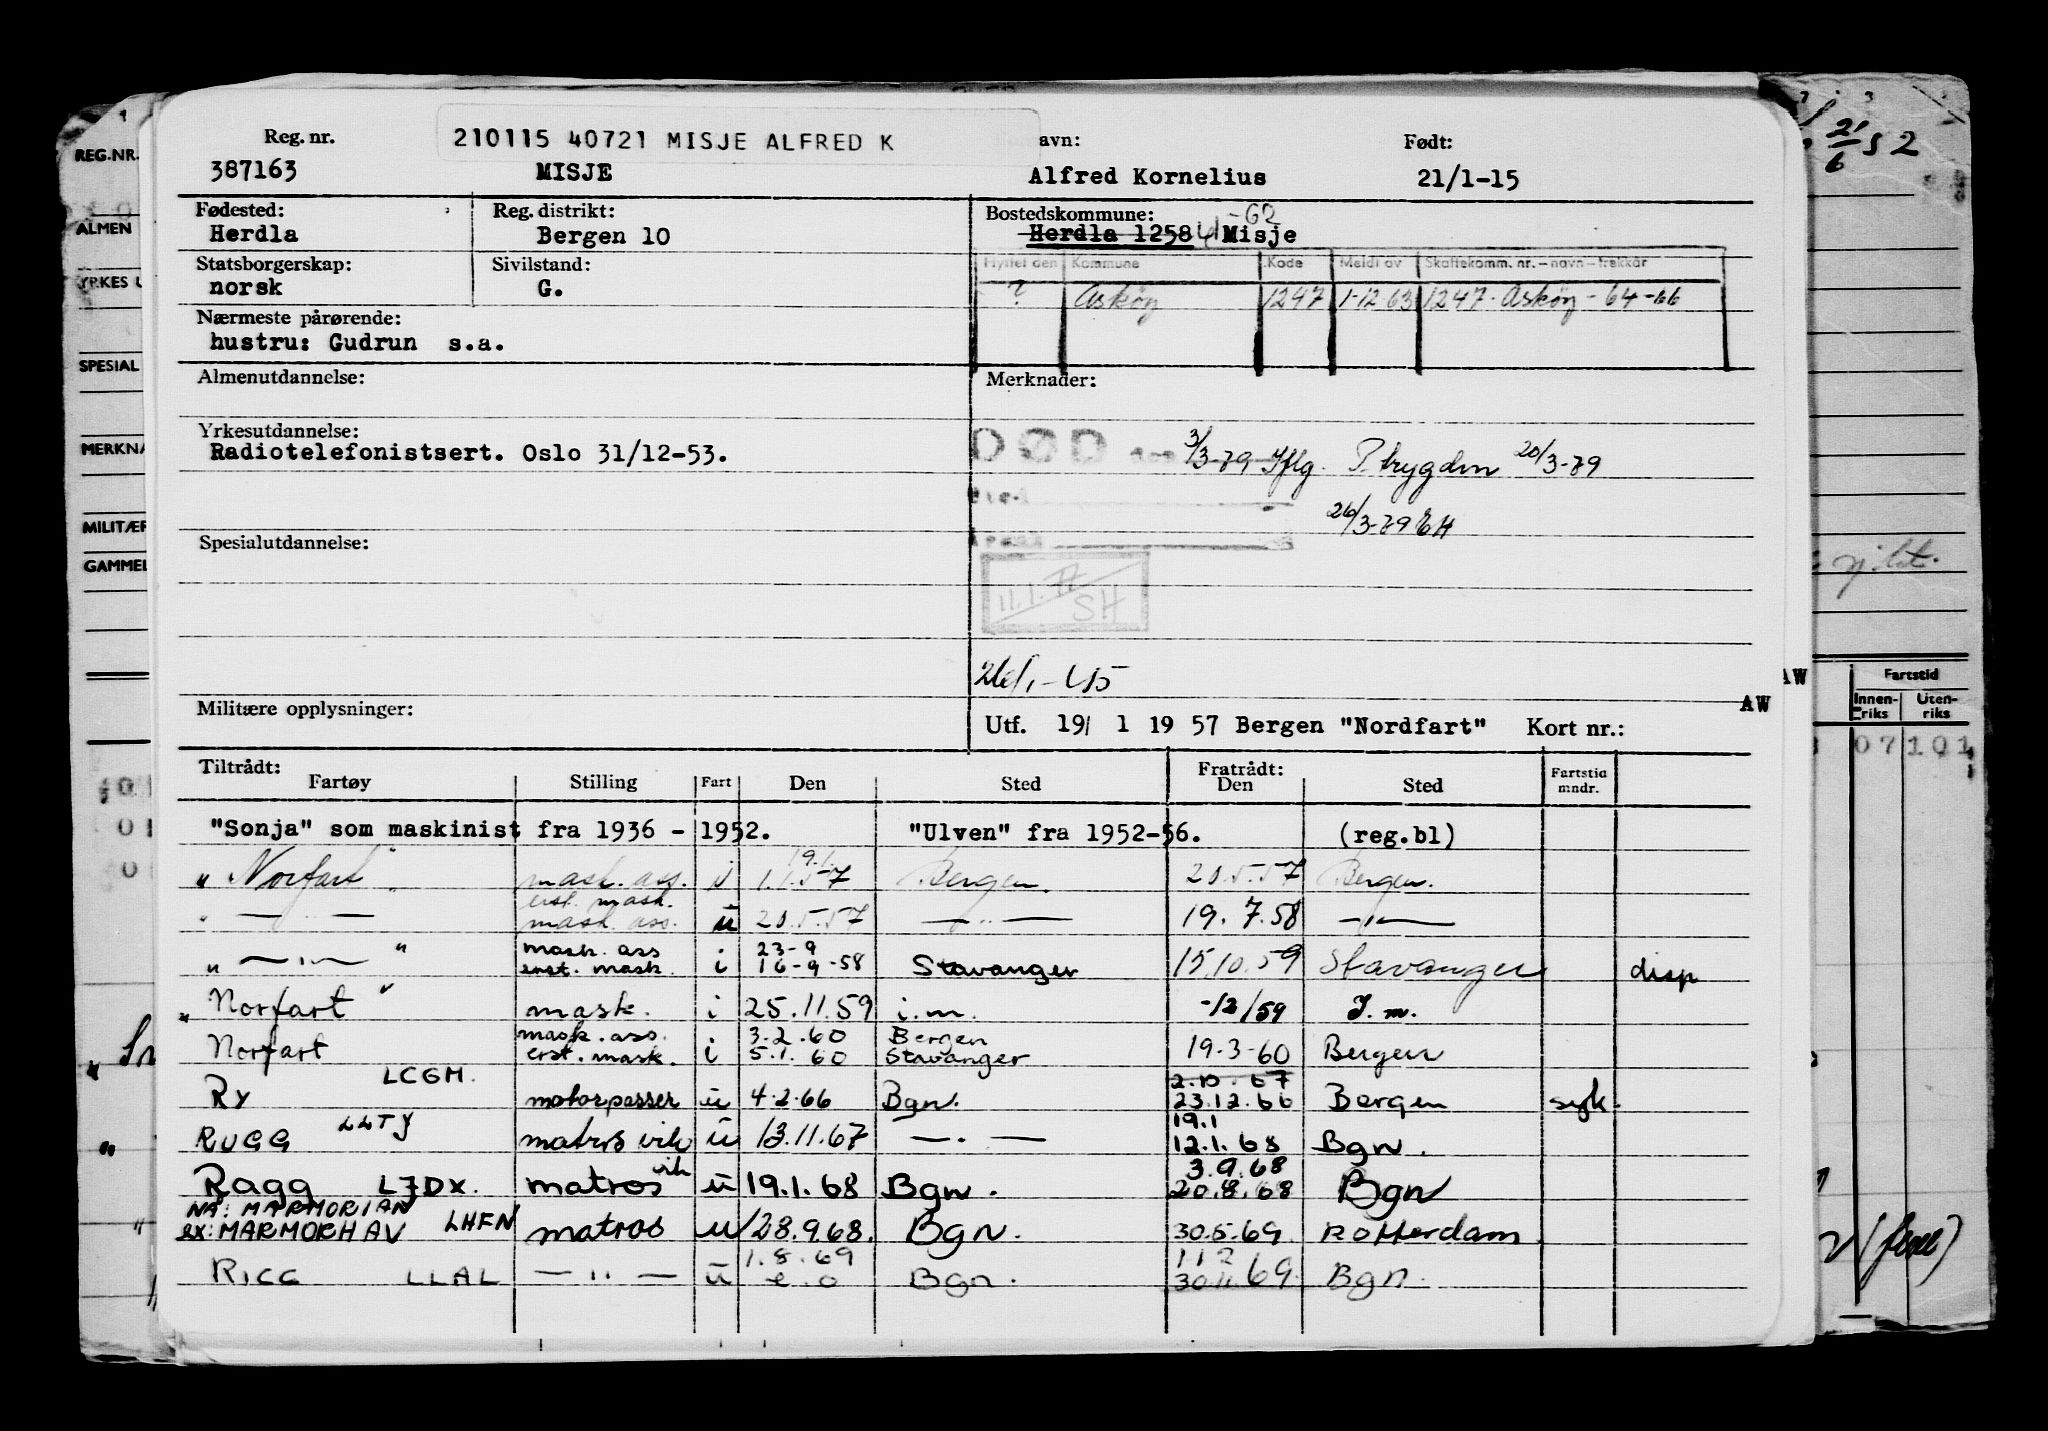 Reg. nr. 210115 40721 MISJE ALFRED K avn: Født:
387163 MISJE Alfred Kornelius 21/1-15
Fødested: Reg. distrikt: Bostedskommune: -62
Herdla Bergen 10 Herdla 1258 Misje
Statsborgerskap: Sivilstand: Flyttet den Kommune Kode Meldt av Skattekomm. nr. – navn – trekkår
norsk G. ? Askøy 1247 1-12 63 1247. Askøy - 64-66
Nærmeste pårørende:
hustru: Gudrun s.a.
Almenutdannelse: Merknader:
Yrkesutdannelse:
Radiotelefonistsert. Oslo 31/12-53. DØD 3/3-79 Iflg. P. trygden 20/3-79
26/3-79 EH
Spesialutdannelse:
11.1.77 SH
Militære opplysninger: AW
Utf. 19/ 1 19 57 Bergen "Nordfart" Kort nr.:
Tiltrådt: Fratrådt:
Fartøy Stilling Fart Den Sted Den Sted Fartstid mndr.
"Sonja" som maskinist fra 1936 - 1952. "Ulven" fra 1952-56. (reg.bl)
19.1.
" Norfart " mask. ass. i 1.1.57 Bergen. 20.5.57 Bergen.
erst. mask.
" — — mask. ass. u 20.5.57 — " — 19.7.58 — " —
mask. ass 23-9
" — " — " erst. mask. i 16-9-58 Stavanger 15.10.59 Stavanger disp
" Norfart " mask. i 25.11.59 i.m. -12/59 I.m.
mask. ass. 3.2.60 Bergen
Norfart erst. mask. i 5.1.60 Stavanger 19-3-60 Bergen
LCGM. 2.10.67
Ry motorpasser u 4-2-66 Bgn. 23.12.66 Bergen syk.
LLTJ 19.1
RUGG matros vik u 13.11.67 — . — 12.1.68 Bgn.
vik 3.9.68
Ragg LJDX. matros u 19.1.68 Bgn. 20.8.68 Bgn
NÅ: MARMORIAN
ex: MARMORHAV LHFN matros u 28.9.68. Bgn. 30.5.69. Rotterdam
1.8.69
RIGG LLAL — " — u Bgn. 30.11.69 Bgn.
REG.NR.
ALMEN
YRKES U
SPESIAL
MERKNA
MILITÆR
GAMMEL
21/6 52
AW
Fartstid
Innen-riks Uten-riks
07 101